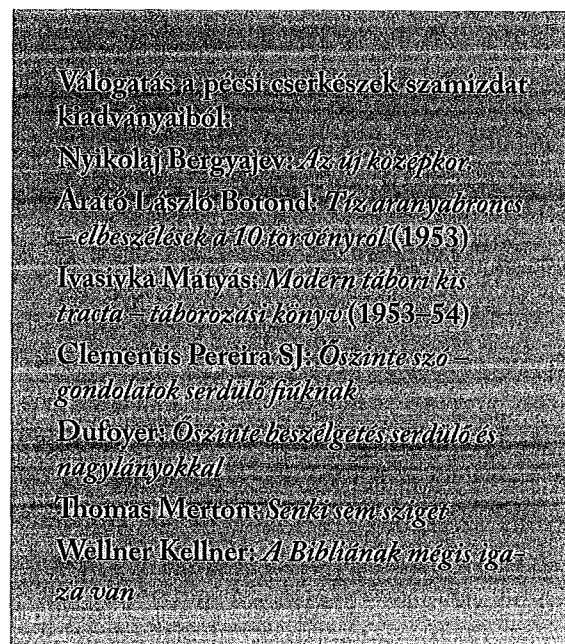 Válogatás a pécsi cserkészek szamizdat
kiadványaiból:
Nyikolaj Bergyajev: Az új középkor
Arató László Botond: Tíz aranyabroncs
– elbeszélések a 10 törvényről (1953)
Ivasivka Mátyás: Modern tábori kis
tracta – táborozási könyv (1953–54)
Clementis Pereira SJ: Őszinte szó –
gondolatok serdülő fiúknak
Dufoyer: Őszinte beszélgetés serdülő és
nagylányokkal
Thomas Merton: Senki sem sziget
Wellner Kellner: A Bibliának mégis iga-
za van